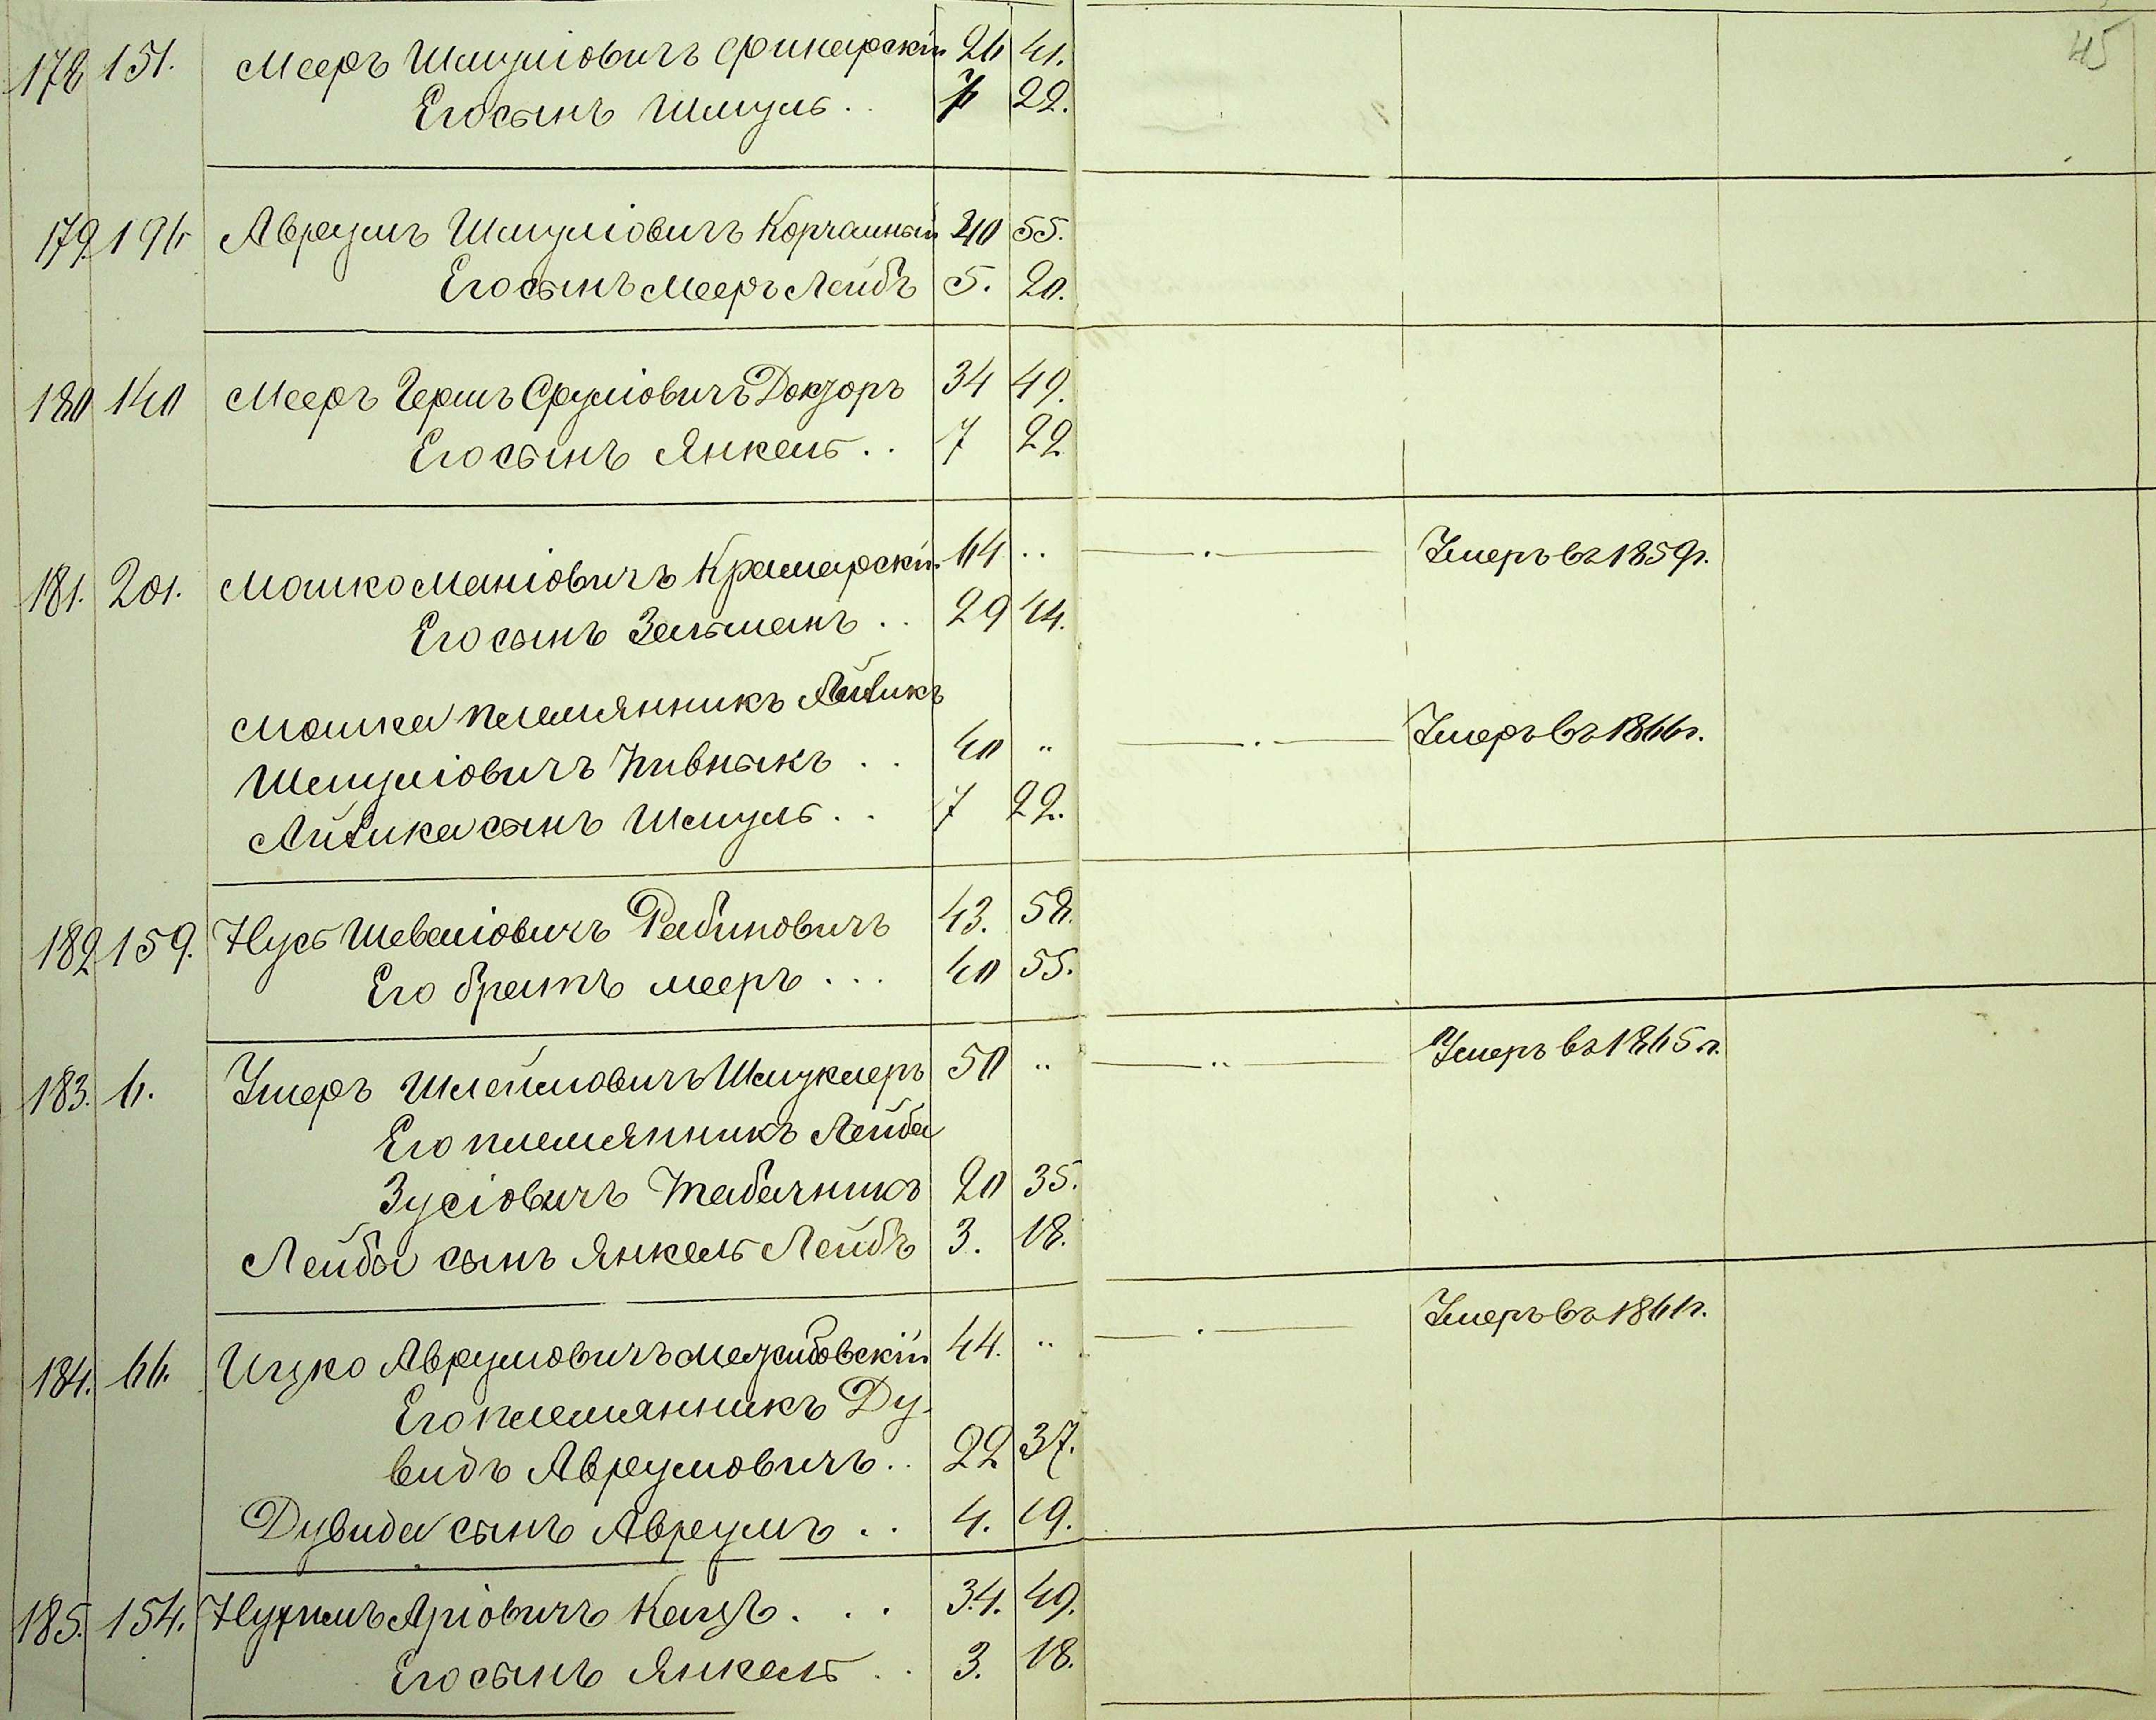 45
178 151. Мееръ Шмуліовичъ Финарскій 26 41.
Его сынъ Шмуль . . 7 22.
179. 196 Авруумъ Шмуліовичъ Корчашный 40 55.
Его сынъ Мееръ Лейбъ 5. 20.
180 140 Мееръ Гершъ Сруліовичъ Докторъ 34 49.
Его сынъ Янкель . . 7 22
181. 201. Мошко Маніовичъ Крамарскій 64 .. Умеръ въ 1859 г.
Его сынъ Зельманъ . . 29 44.
Мошка племянникъ Айзикъ
Шмуліовичъ Пивныкъ . . 40 „ Умеръ въ 1866 г.
Айзика сынъ Шмуль . . 7 22.
182 159. Нусъ Шеваліовичъ Рабиновичъ 43. 58.
Его братъ Мееръ . . . 40 55.
183. 6. Умеръ Шлеймовичъ Шмуклеръ 50 .. Умеръ въ 1865 г.
Его племянникъ Лейба
Зусіовичъ Табачникъ 20 35.
Лейбы сынъ Янкель Лейбъ 3. 18.
184. 66. Ицко Аврумовичъ Межибовскій 44. .. Умеръ въ 1861 г.
Его племянникъ Ду-
видъ Аврумовичъ . . 22 37.
Дувида сынъ Аврумъ . . 4. 19.
185. 154. Нухимъ Аріовичъ Кацъ . . . 34. 49.
Его сынъ Янкель . . 3. 18.